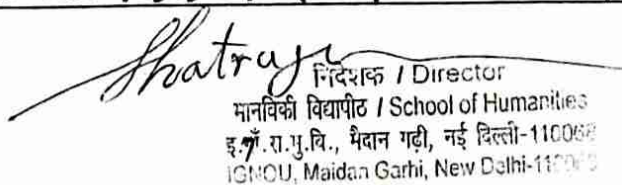 निदेशक / Director
मानविकी विद्यापीठ / School of Humanities
इ.गाँ.रा.मु.वि., मैदान गढ़ी, नई दिल्ली-110068
IGNOU, Maidan Garhi, New Delhi-110068